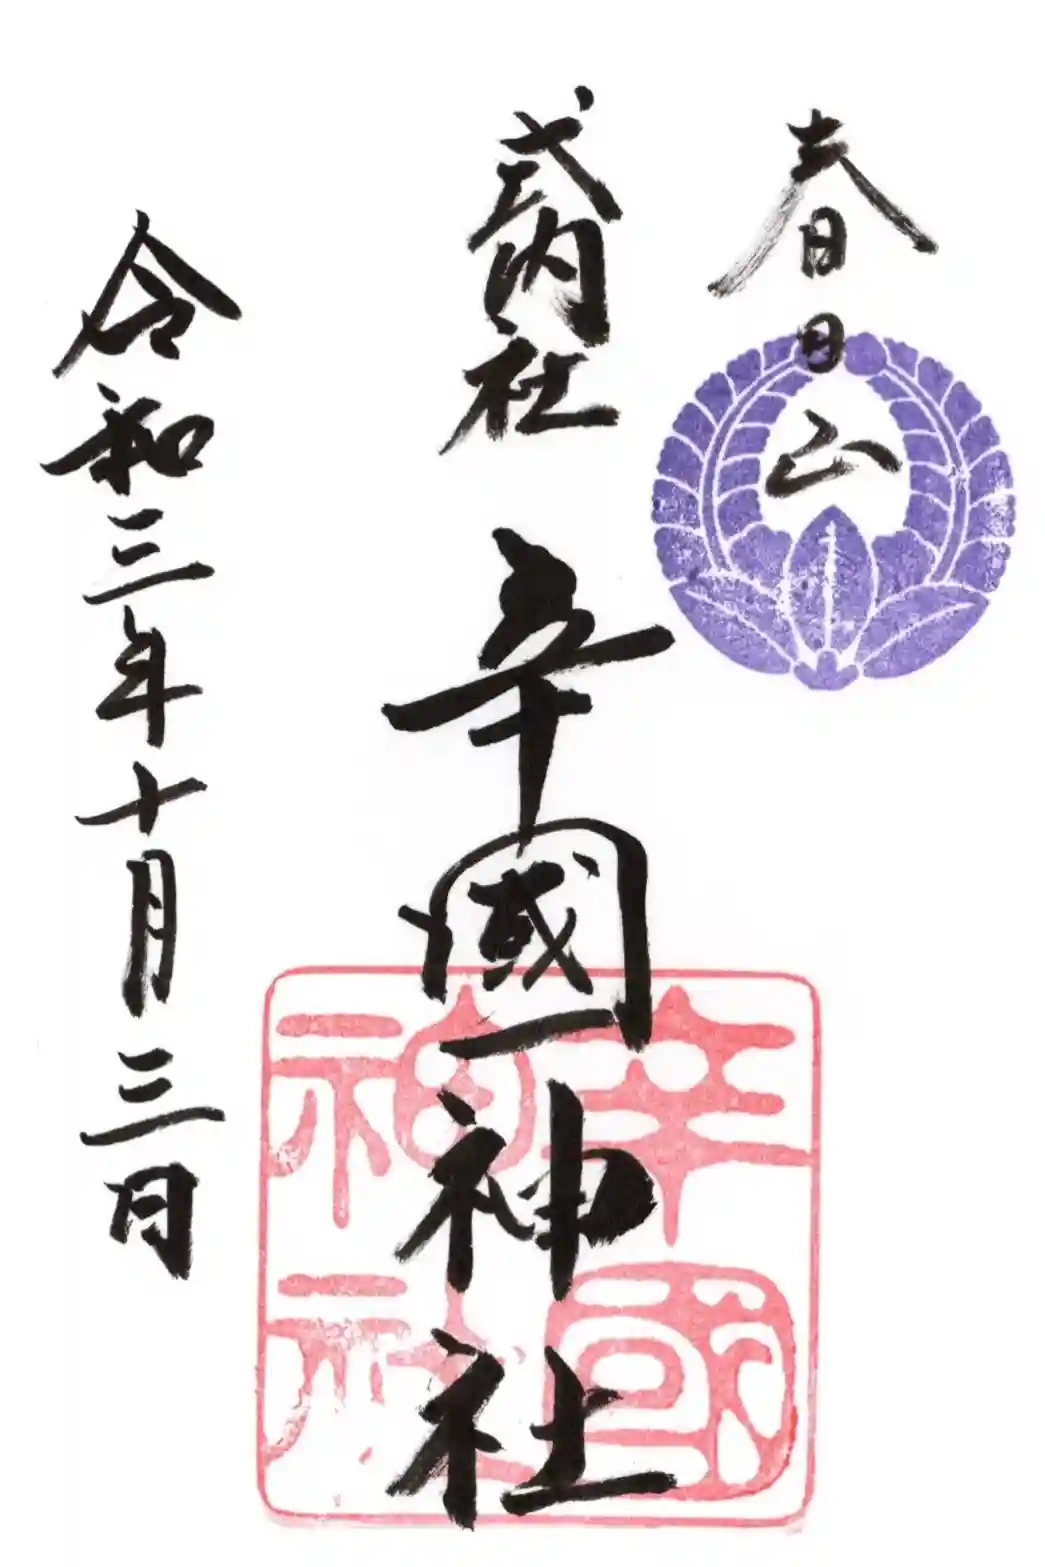 春日日山
式内社
辛國神社
令和三年十月三日
辛國神社